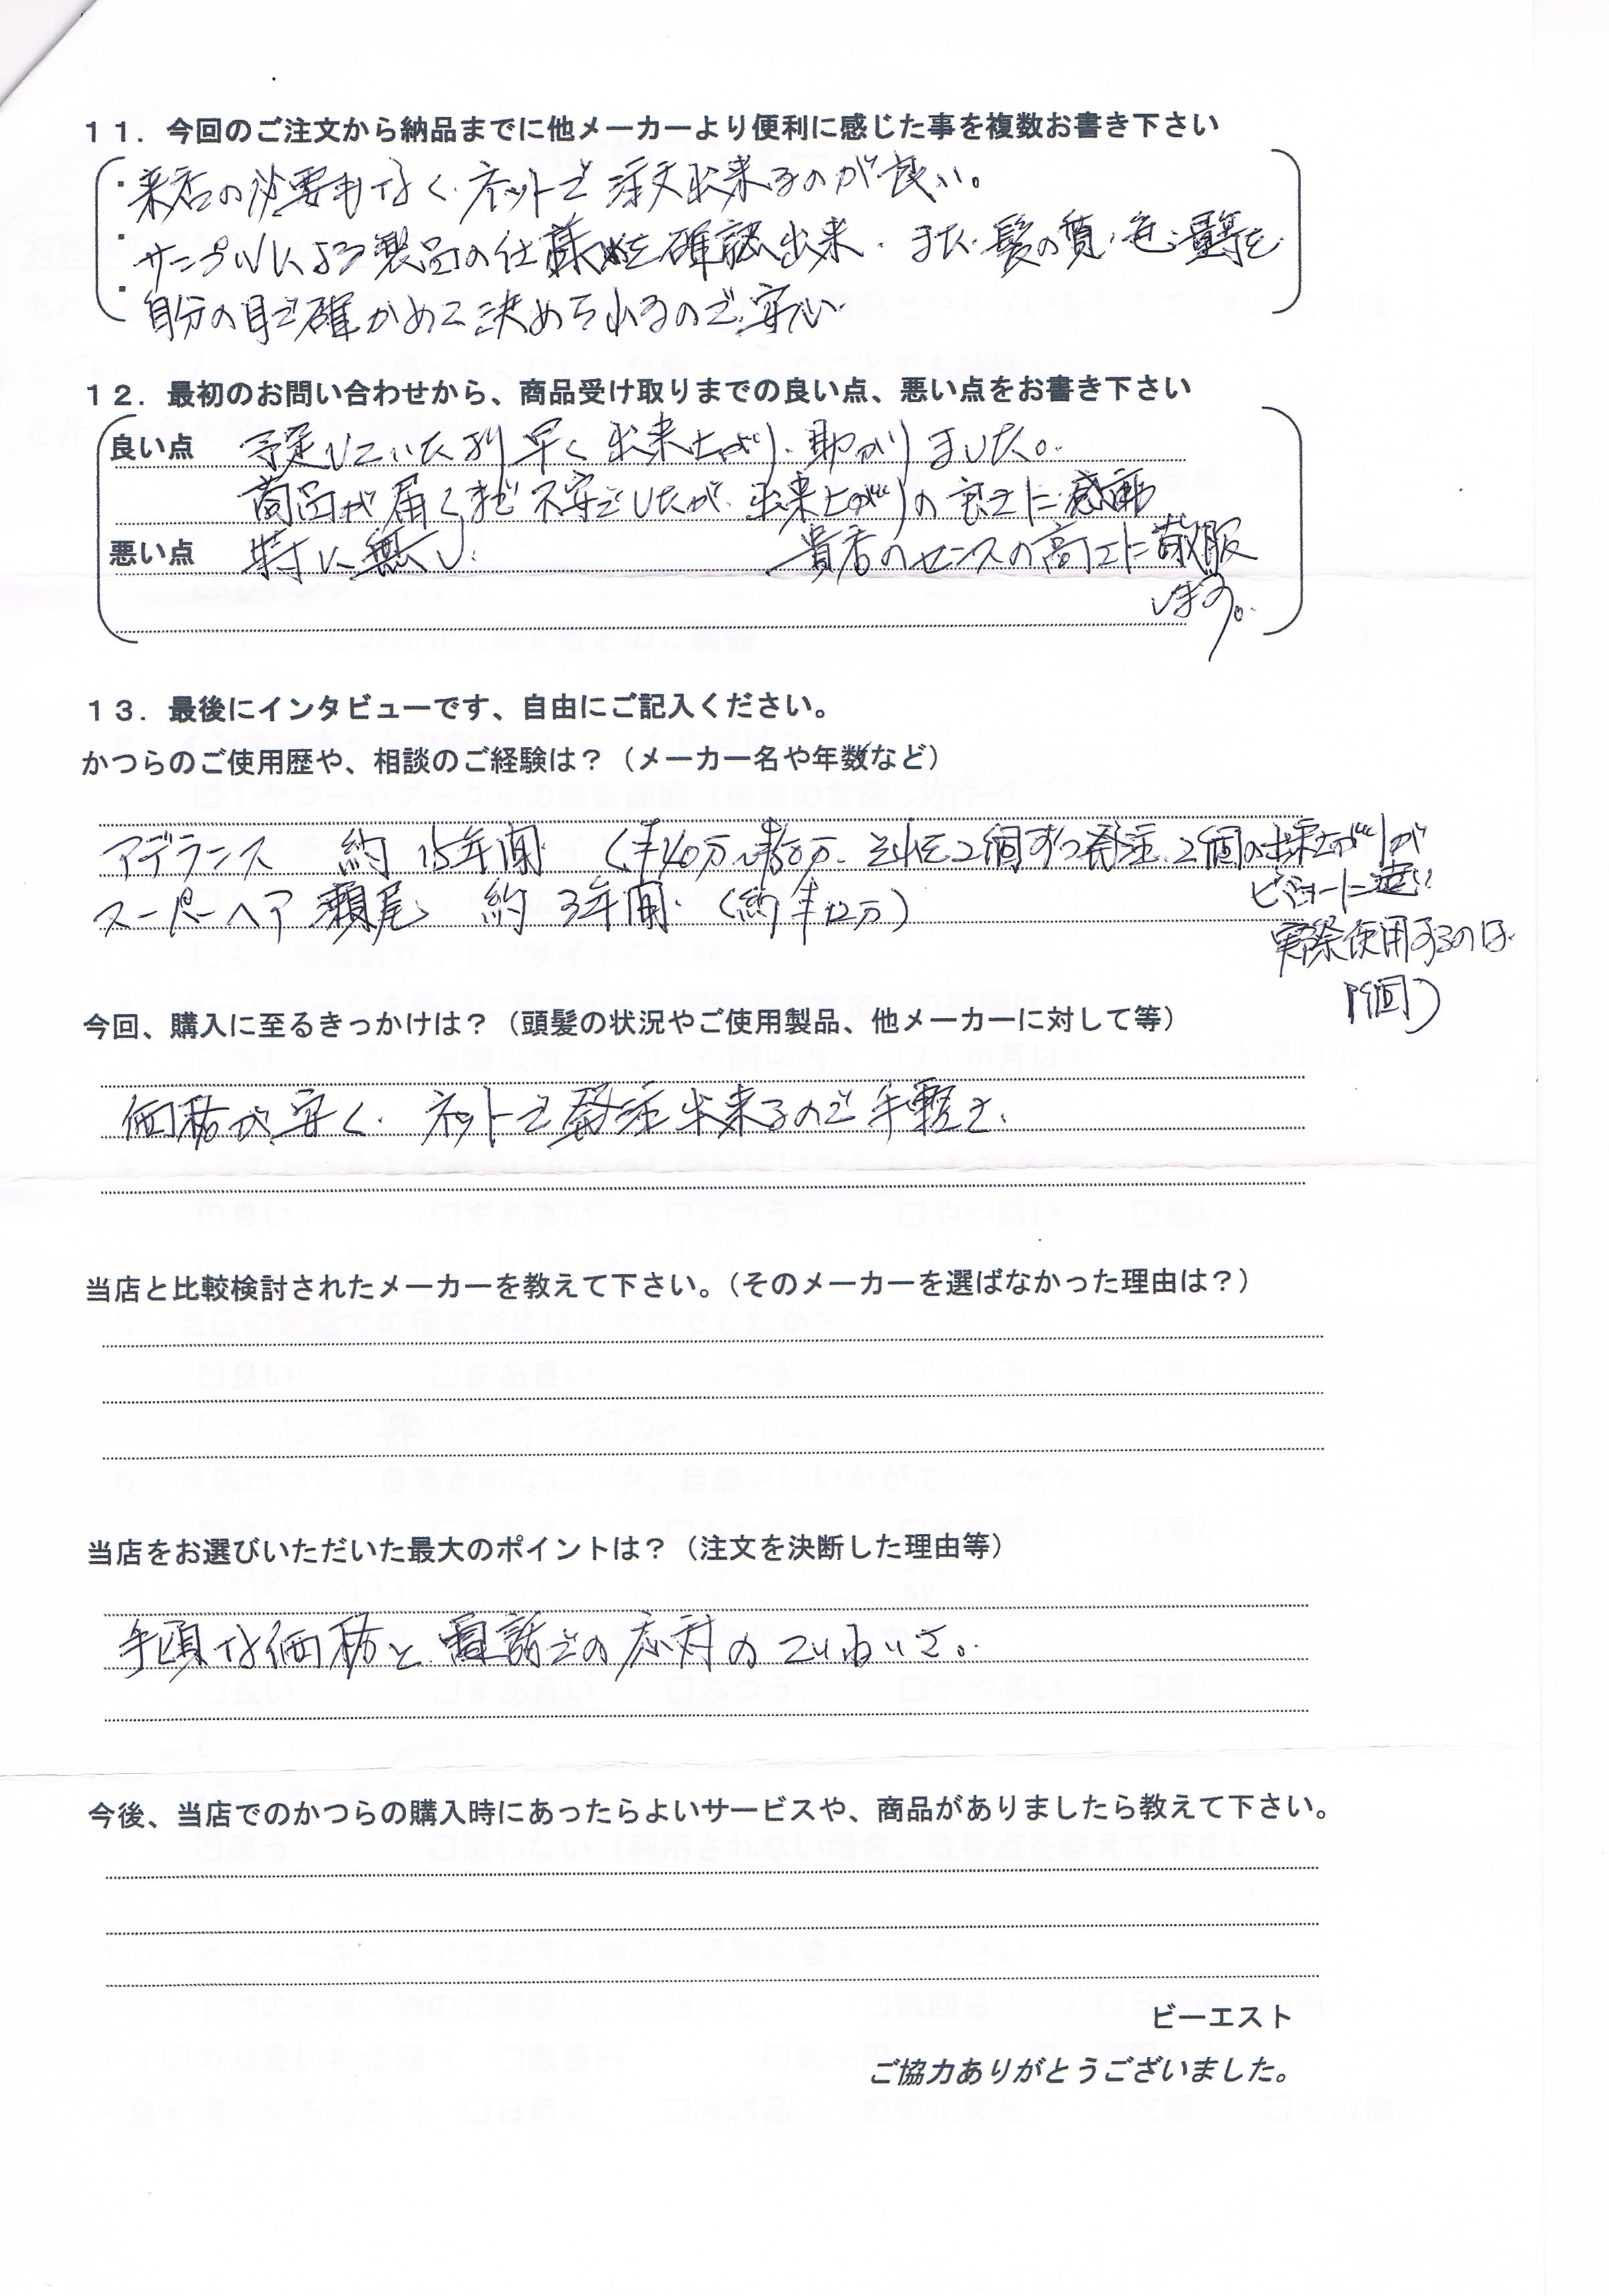 11．今回のご注文から納品までに他メーカーより便利に感じた事を複数お書き下さい
・来店の必要もなく、ネットで注文出来るのが良い。
・サンプルによる製品の仕様を確認出来、また、髪の質、色、量等を
・自分の目で確かめて決められるので安心
12．最初のお問い合わせから、商品受け取りまでの良い点、悪い点をお書き下さい
良い点 予定していたより早く出来上がり、助かりました。
商品が届くまで不安でしたが、出来上がりの良さに感動
悪い点 特に無し、 貴店のセンスの高さに敬服
します。
13．最後にインタビューです、自由にご記入ください。
かつらのご使用歴や、相談のご経験は？（メーカー名や年数など）
アデランス 約15年間 （年40万〜 万、それを2個ずつ発注、2個の出来上がりが
ビミョーに違い
スーパーヘア瀬尾 約3年間 （約年12万）
実際使用するのは
1個）
今回、購入に至るきっかけは？（頭髪の状況やご使用製品、他メーカーに対して等）
価格が安く、ネットで発注出来るので手軽さ、
当店と比較検討されたメーカーを教えて下さい。（そのメーカーを選ばなかった理由は？）
当店をお選びいただいた最大のポイントは？（注文を決断した理由等）
手頃な価格と電話での応対のていねいさ。
今後、当店でのかつらの購入時にあったらよいサービスや、商品がありましたら教えて下さい。
ビーエスト
ご協力ありがとうございました。